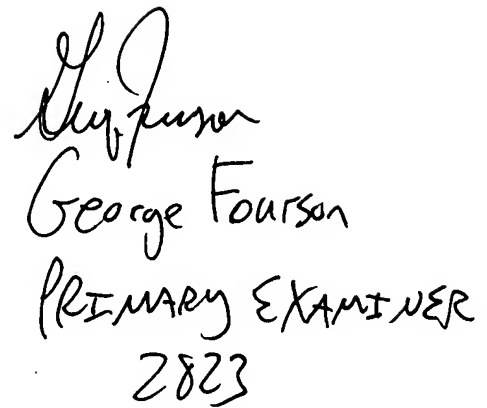 George Fourson
PRIMARY EXAMINER
2823